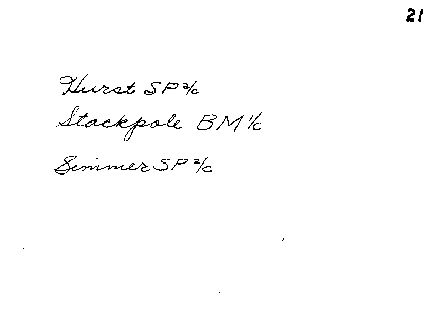 21
Hurst SP 2/c
Stackpole BM 1/c
Simmer SP 2/c